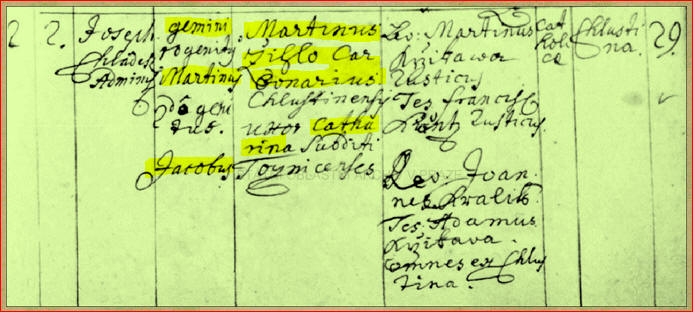 2 2. Joseph
Chladek
Adminis
gemini
rogenity
Martinus
dogeni
tus.
Jacobus
Martinus
Siflo Car
bonarius
Chlustinensis
uxor Catha
rina Subditi
Toynicenses
Lev: Martinus
Kvitawa
Rusticus
Tes Francisc
Rusticus.
Le: Joan
nes Kralik
Tes: Adamus
Kvitava.
omnes ex Chlus
tina.
cat
holi
ca
Chlusti
na.
29.